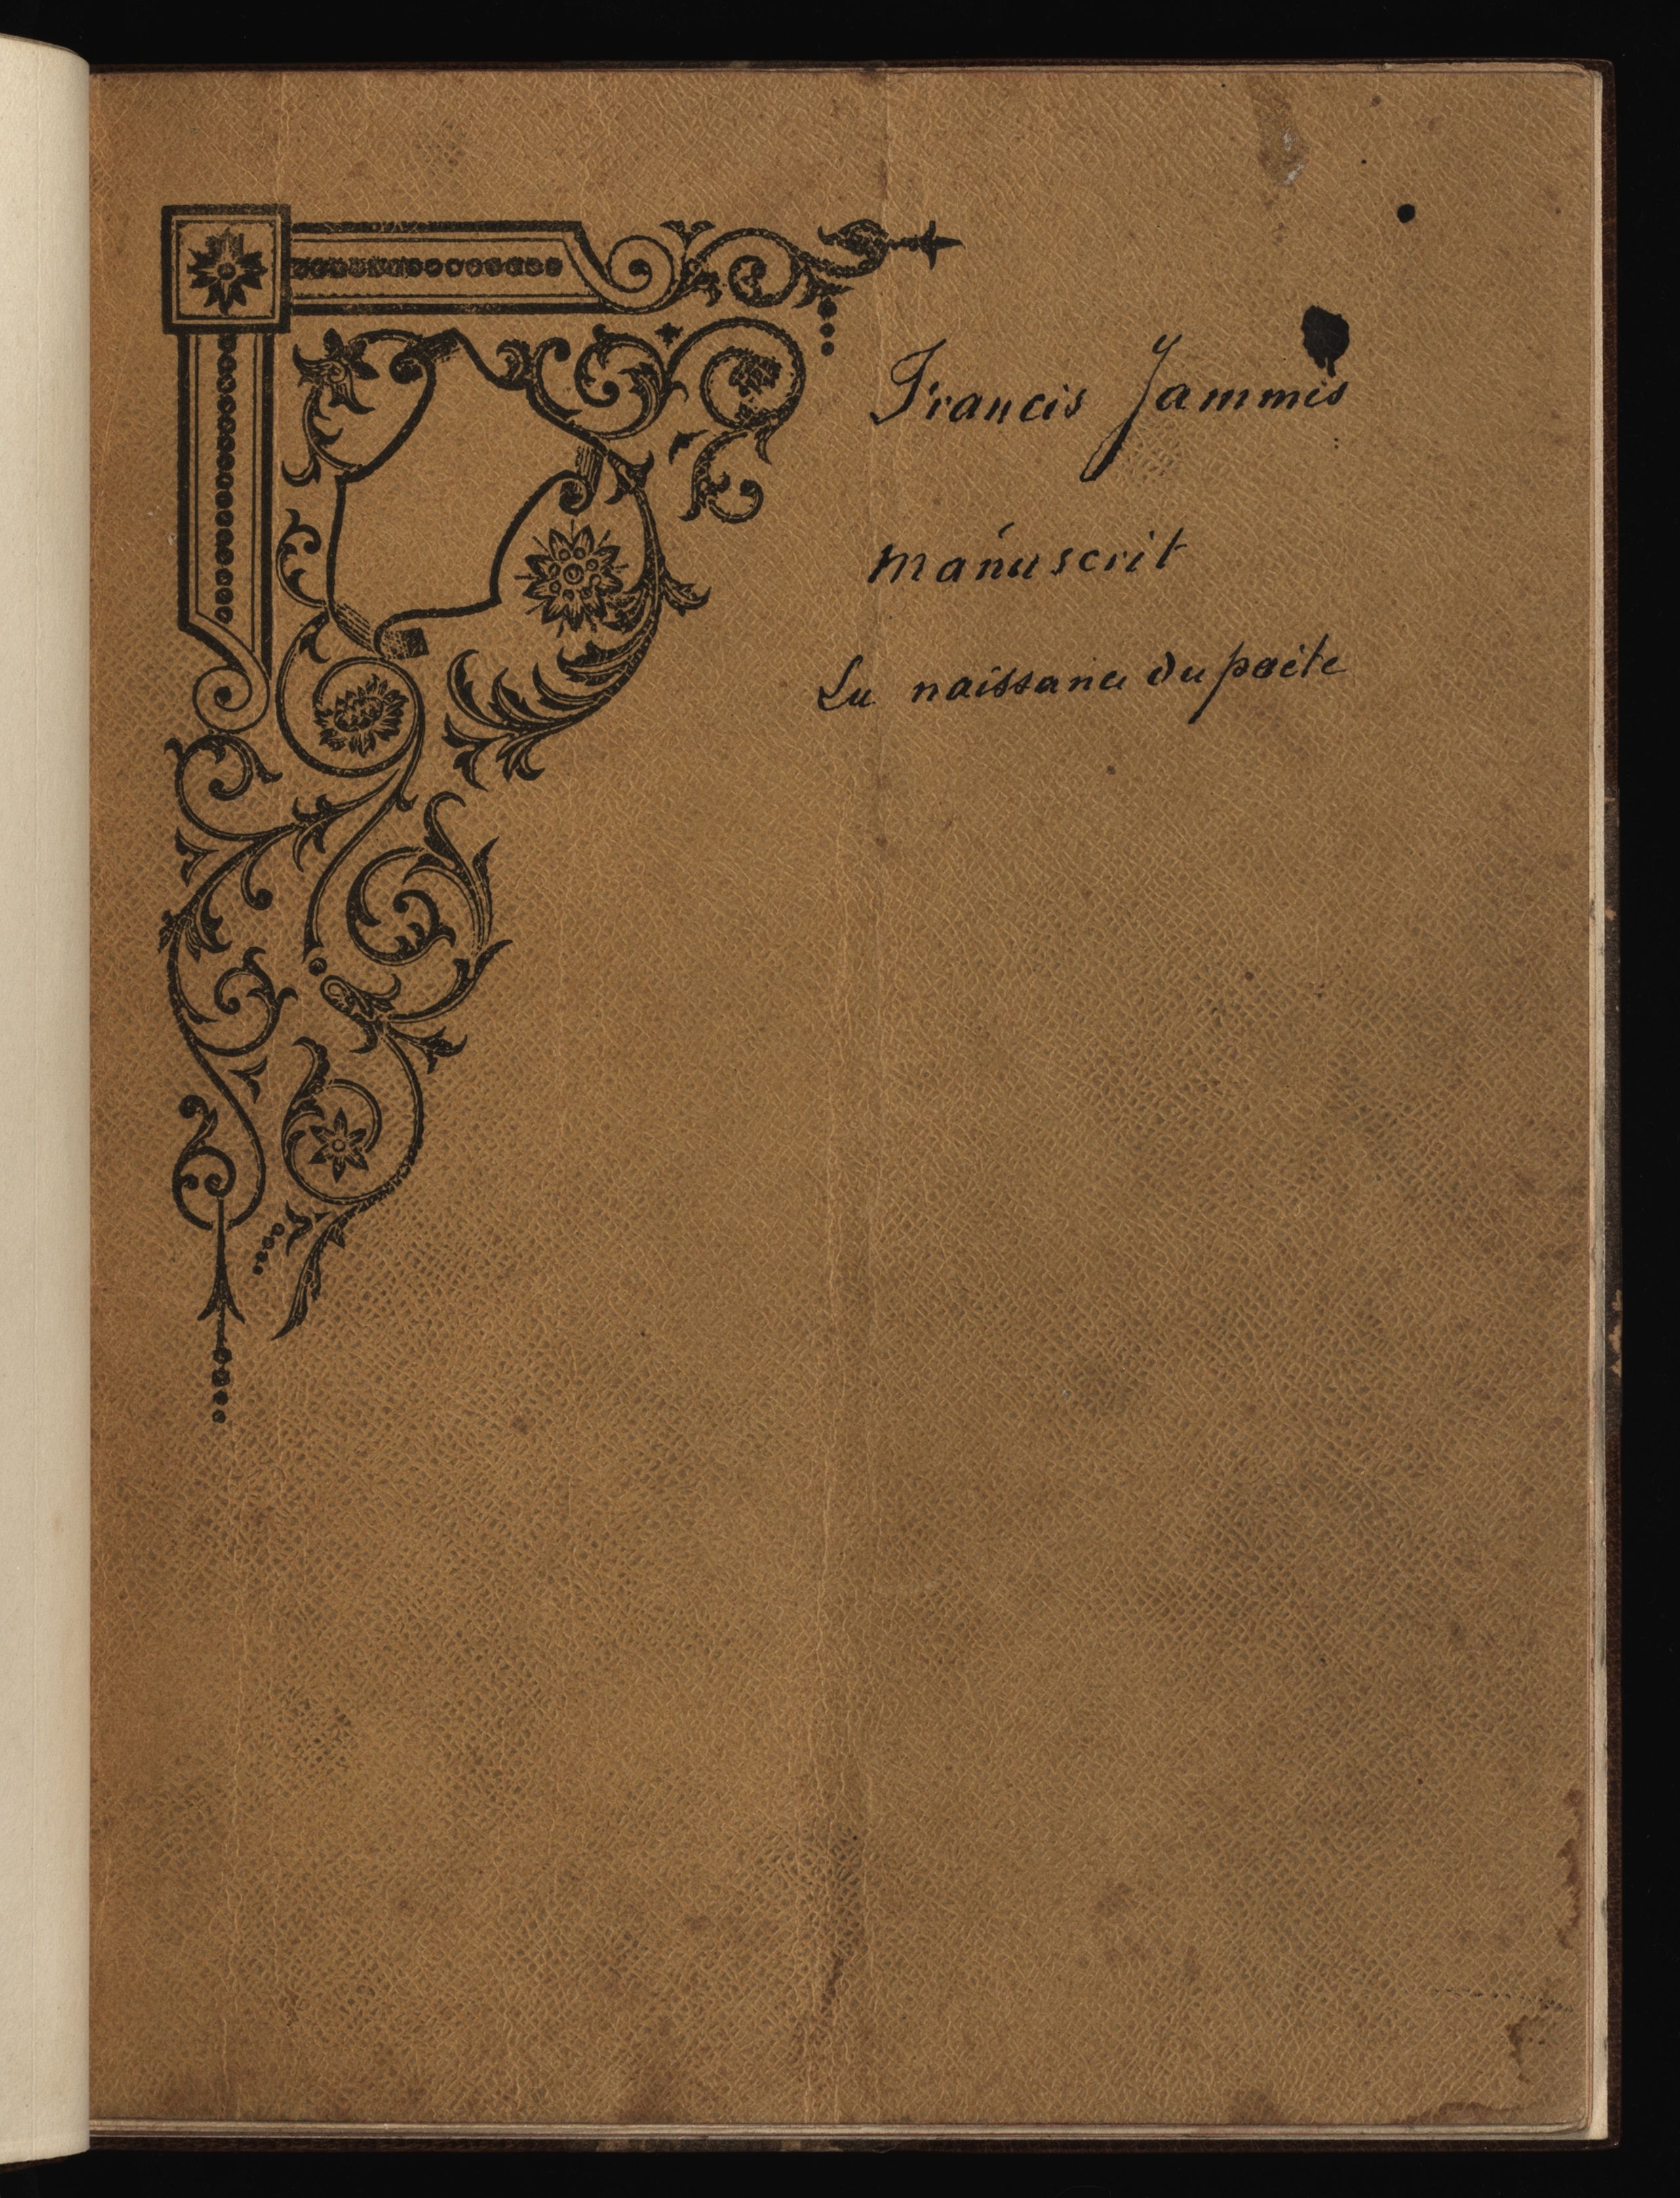 Francis Jammes
manuscrit
La naissance du poète